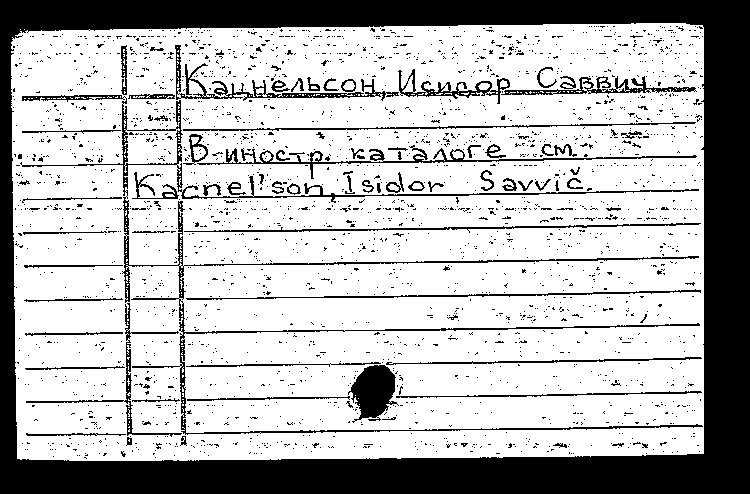 Кацнельсон, Исидор Саввич.
В иностр. каталоге см.:
Kacnel'son, Isidor Savvič.